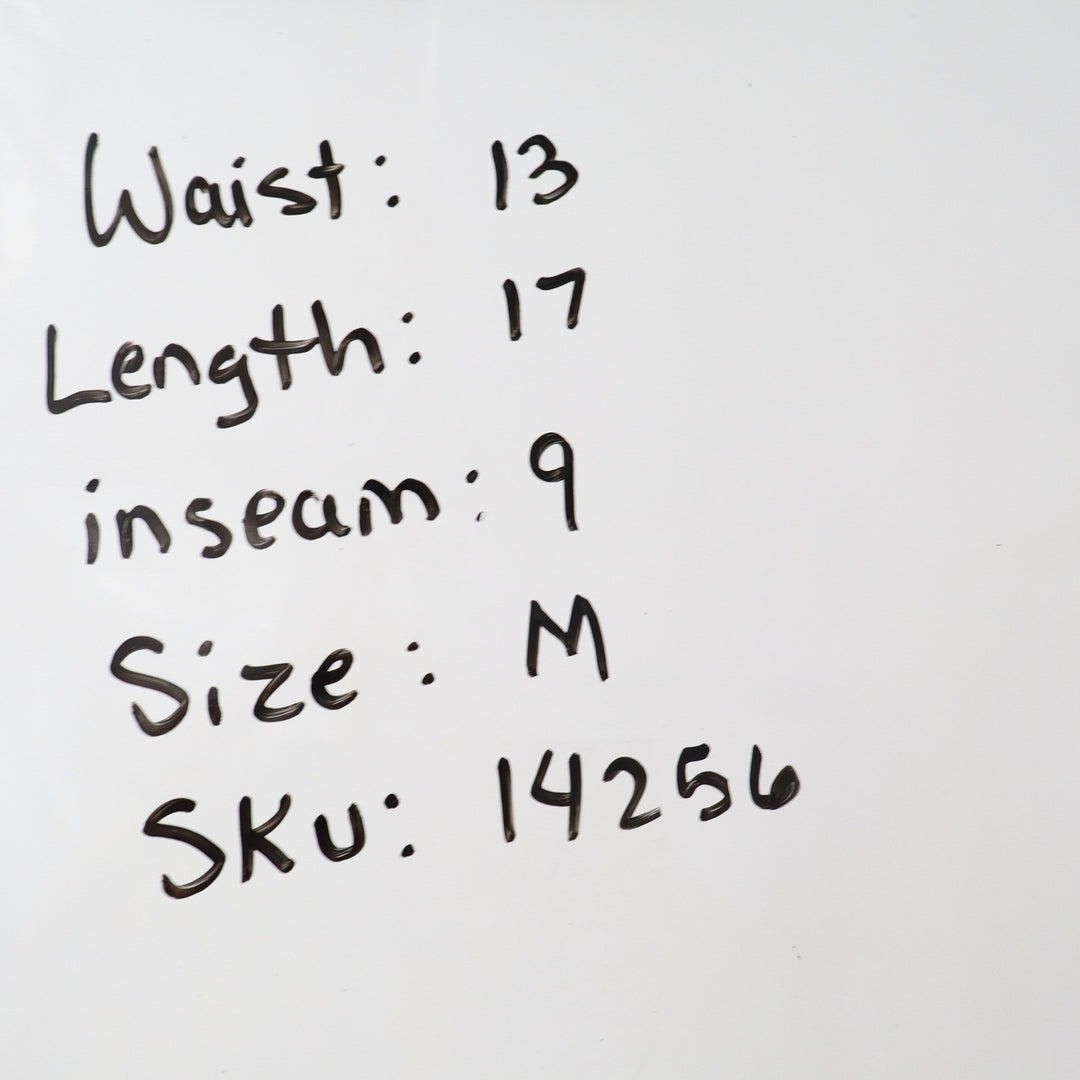 Waist: 13
Length: 17
inseam: 9
Size: M
SKU: 14256